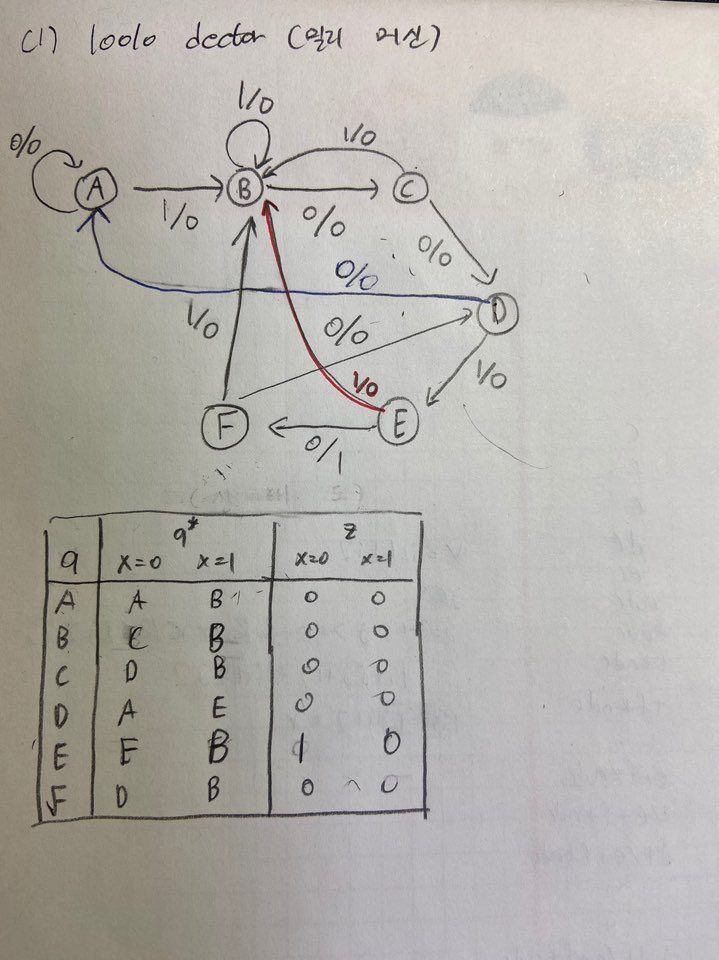 (1) 10010 dector (밀리 머신)
1/0
1/0
0/0
A
B
C
1/0
0/0
0/0
0/0
D
1/0
0/0
1/0
1/0
F
E
0/1
q* z
q x=0 x=1 x=0 x=1
A A B 0 0
B C B 0 0
C D B 0 0
D A E 0 0
E F B 1 0
F D B 0 0